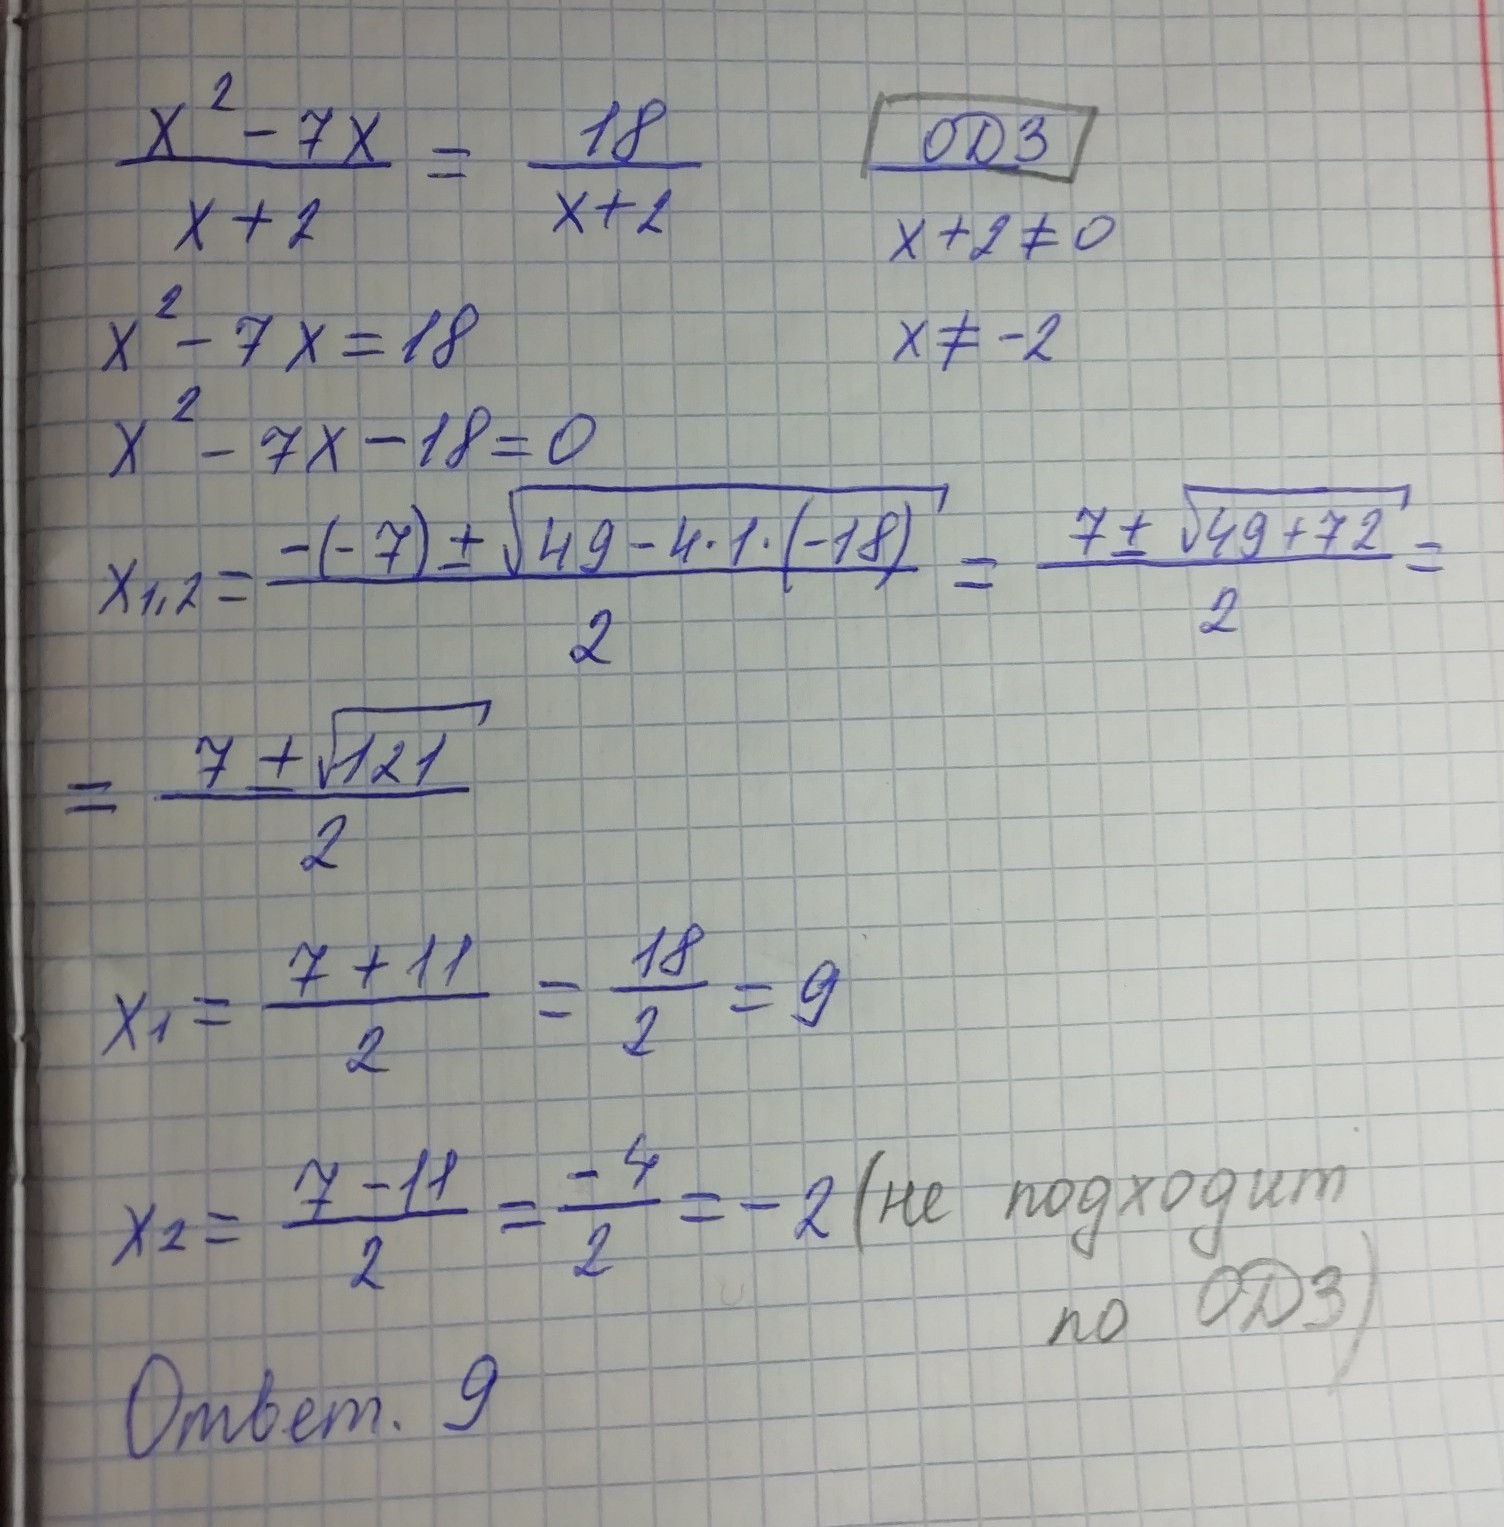 (x² - 7x)/(x + 2) = 18/(x + 2)
ОДЗ
x + 2 ≠ 0
x² - 7x = 18
x ≠ -2
x² - 7x - 18 = 0
x1,2 = (-(-7) ± √(49 - 4·1·(-18)))/2 = (7 ± √(49 + 72))/2 =
= (7 ± √121)/2
x1 = (7 + 11)/2 = 18/2 = 9
x2 = (7 - 11)/2 = -4/2 = -2 (не подходит
по ОДЗ)
Ответ. 9